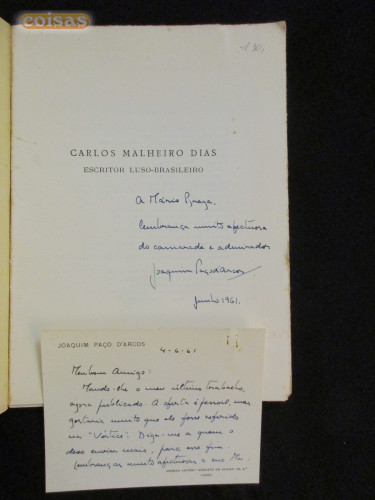 coisas
130,
CARLOS MALHEIRO DIAS
ESCRITOR LUSO-BRASILEIRO
A Mário Braga,
lembrança muito afectuosa
do camarada e admirador
Joaquim Paço d'Arcos
Junho 1961.
JOAQUIM PAÇO D'ARCOS
4-6-61
Meu bom Amigo:
Mando-lhe o meu último trabalho,
agora publicado. A oferta é pessoal, mas
gostaria muito que ele fosse referido
na "Vértice". Diga-me a quem o
devo enviar mais, para esse fim.
Lembranças muito afectuosas do seu